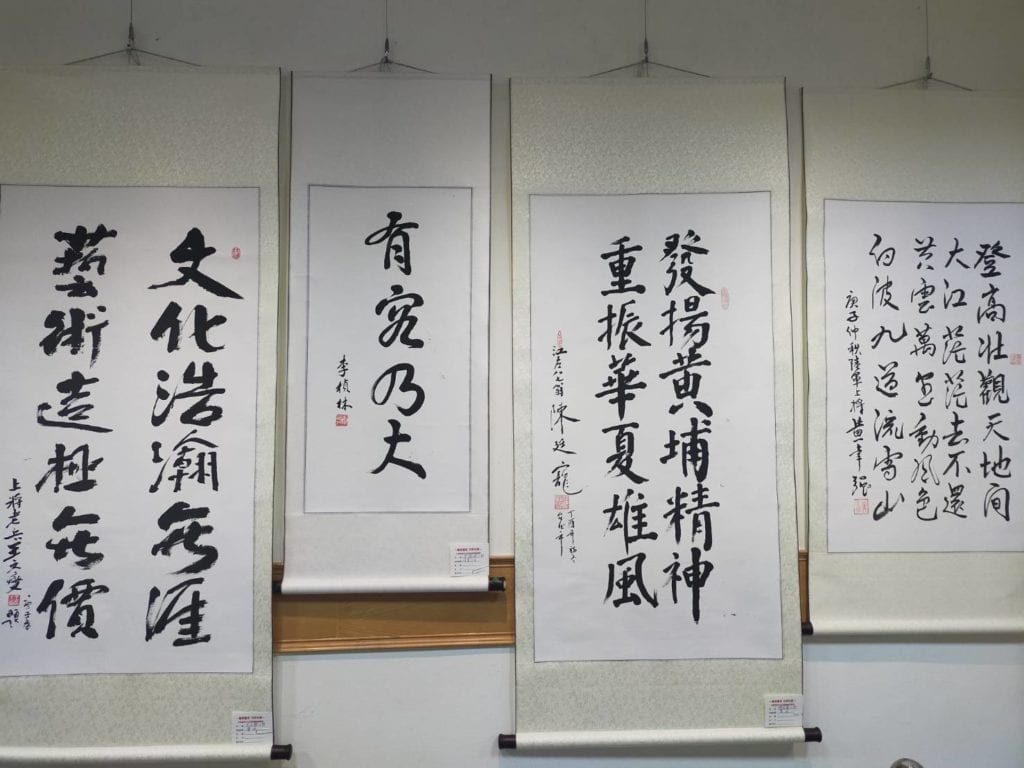 登高壯觀天地间
大江茫茫去不還
黄雲萬里動風色
白波九道流雪山
庚子仲秋陸軍上將黄幸强
發揚黄埔精神
重振華夏雄風
陳廷寵
有容乃大
李楨林
文化浩瀚無涯
藝術造極無價
上將老兵王文燮